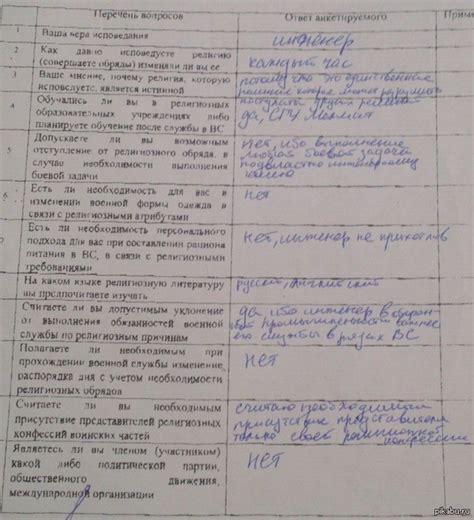 Перечень вопросов
Ответ анкетируемого
Приме
1
Ваша вера исповедания
инженер
2
Как давно исповедуете религию
(совершаете обряды) изменяли ли вы ее
каждый час
3
Ваше мнение, почему религия, которую
исповедуете, является истинной
потому что это единственная
религия которая может разрушить
постулаты других религий
4
Обучались ли вы в религиозных
образовательных учреждениях либо
планируете обучение после службы в ВС
да, СГУ
5
Допускаете ли вы возможным
отступление от религиозного обряда, в
случае необходимости выполнения
боевой задачи
нет, ибо выполнение
любой боевой задачи
подвластно инженерному
6
Есть ли необходимость для вас в
изменении военной формы одежда в
связи с религиозными атрибутами
нет
Есть ли необходимость персонального
подхода для вас при составлении рациона
питания в ВС, в связи с религиозными
требованиями
нет, инженер не прихотлив
На каком языке религиозную литературу
вы предпочитаете изучать
русский, английский
Считаете ли вы допустимым уклонение
от выполнения обязанностей военной
службы по религиозным причинам
да, ибо инженер в оборон
ной промышленности важнее
его службы в рядах ВС
Полагаете ли необходимым при
прохождении военной службы изменение,
распорядка дня с учетом необходимости
религиозных обрядов
нет
Считаете ли вы необходимым
присутствие представителей религиозных
конфессий воинских частей
считаю необходимым
присутствие представителя
только своей религиозной
конфессии
Являетесь ли вы членом (участником)
какой либо политической партии,
общественного движения,
международной организации
нет
pikabu.ru